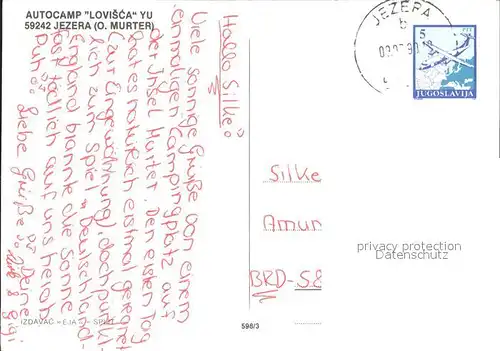 AUTOCAMP "LOVIŠĆA" YU
59242 JEZERA (O. MURTER)
Hallo Silke!
Viele sonnige Grüße von einem
einmaligen Campingplatz auf
der Insel Murter. Den ersten Tag
hat es natürlich erstmal geregnet
(zur Eingewöhnung), doch pünkt-
lich zum Spiel "Deutschland-
England brannte die Sonne
fast tödlich auf uns herab.
Puh!
Liebe Grüße
Deine
JEZERA
5
JUGOSLAVIJA
Silke
Amur
BRD-58
privacy protection
Datenschutz
598/3